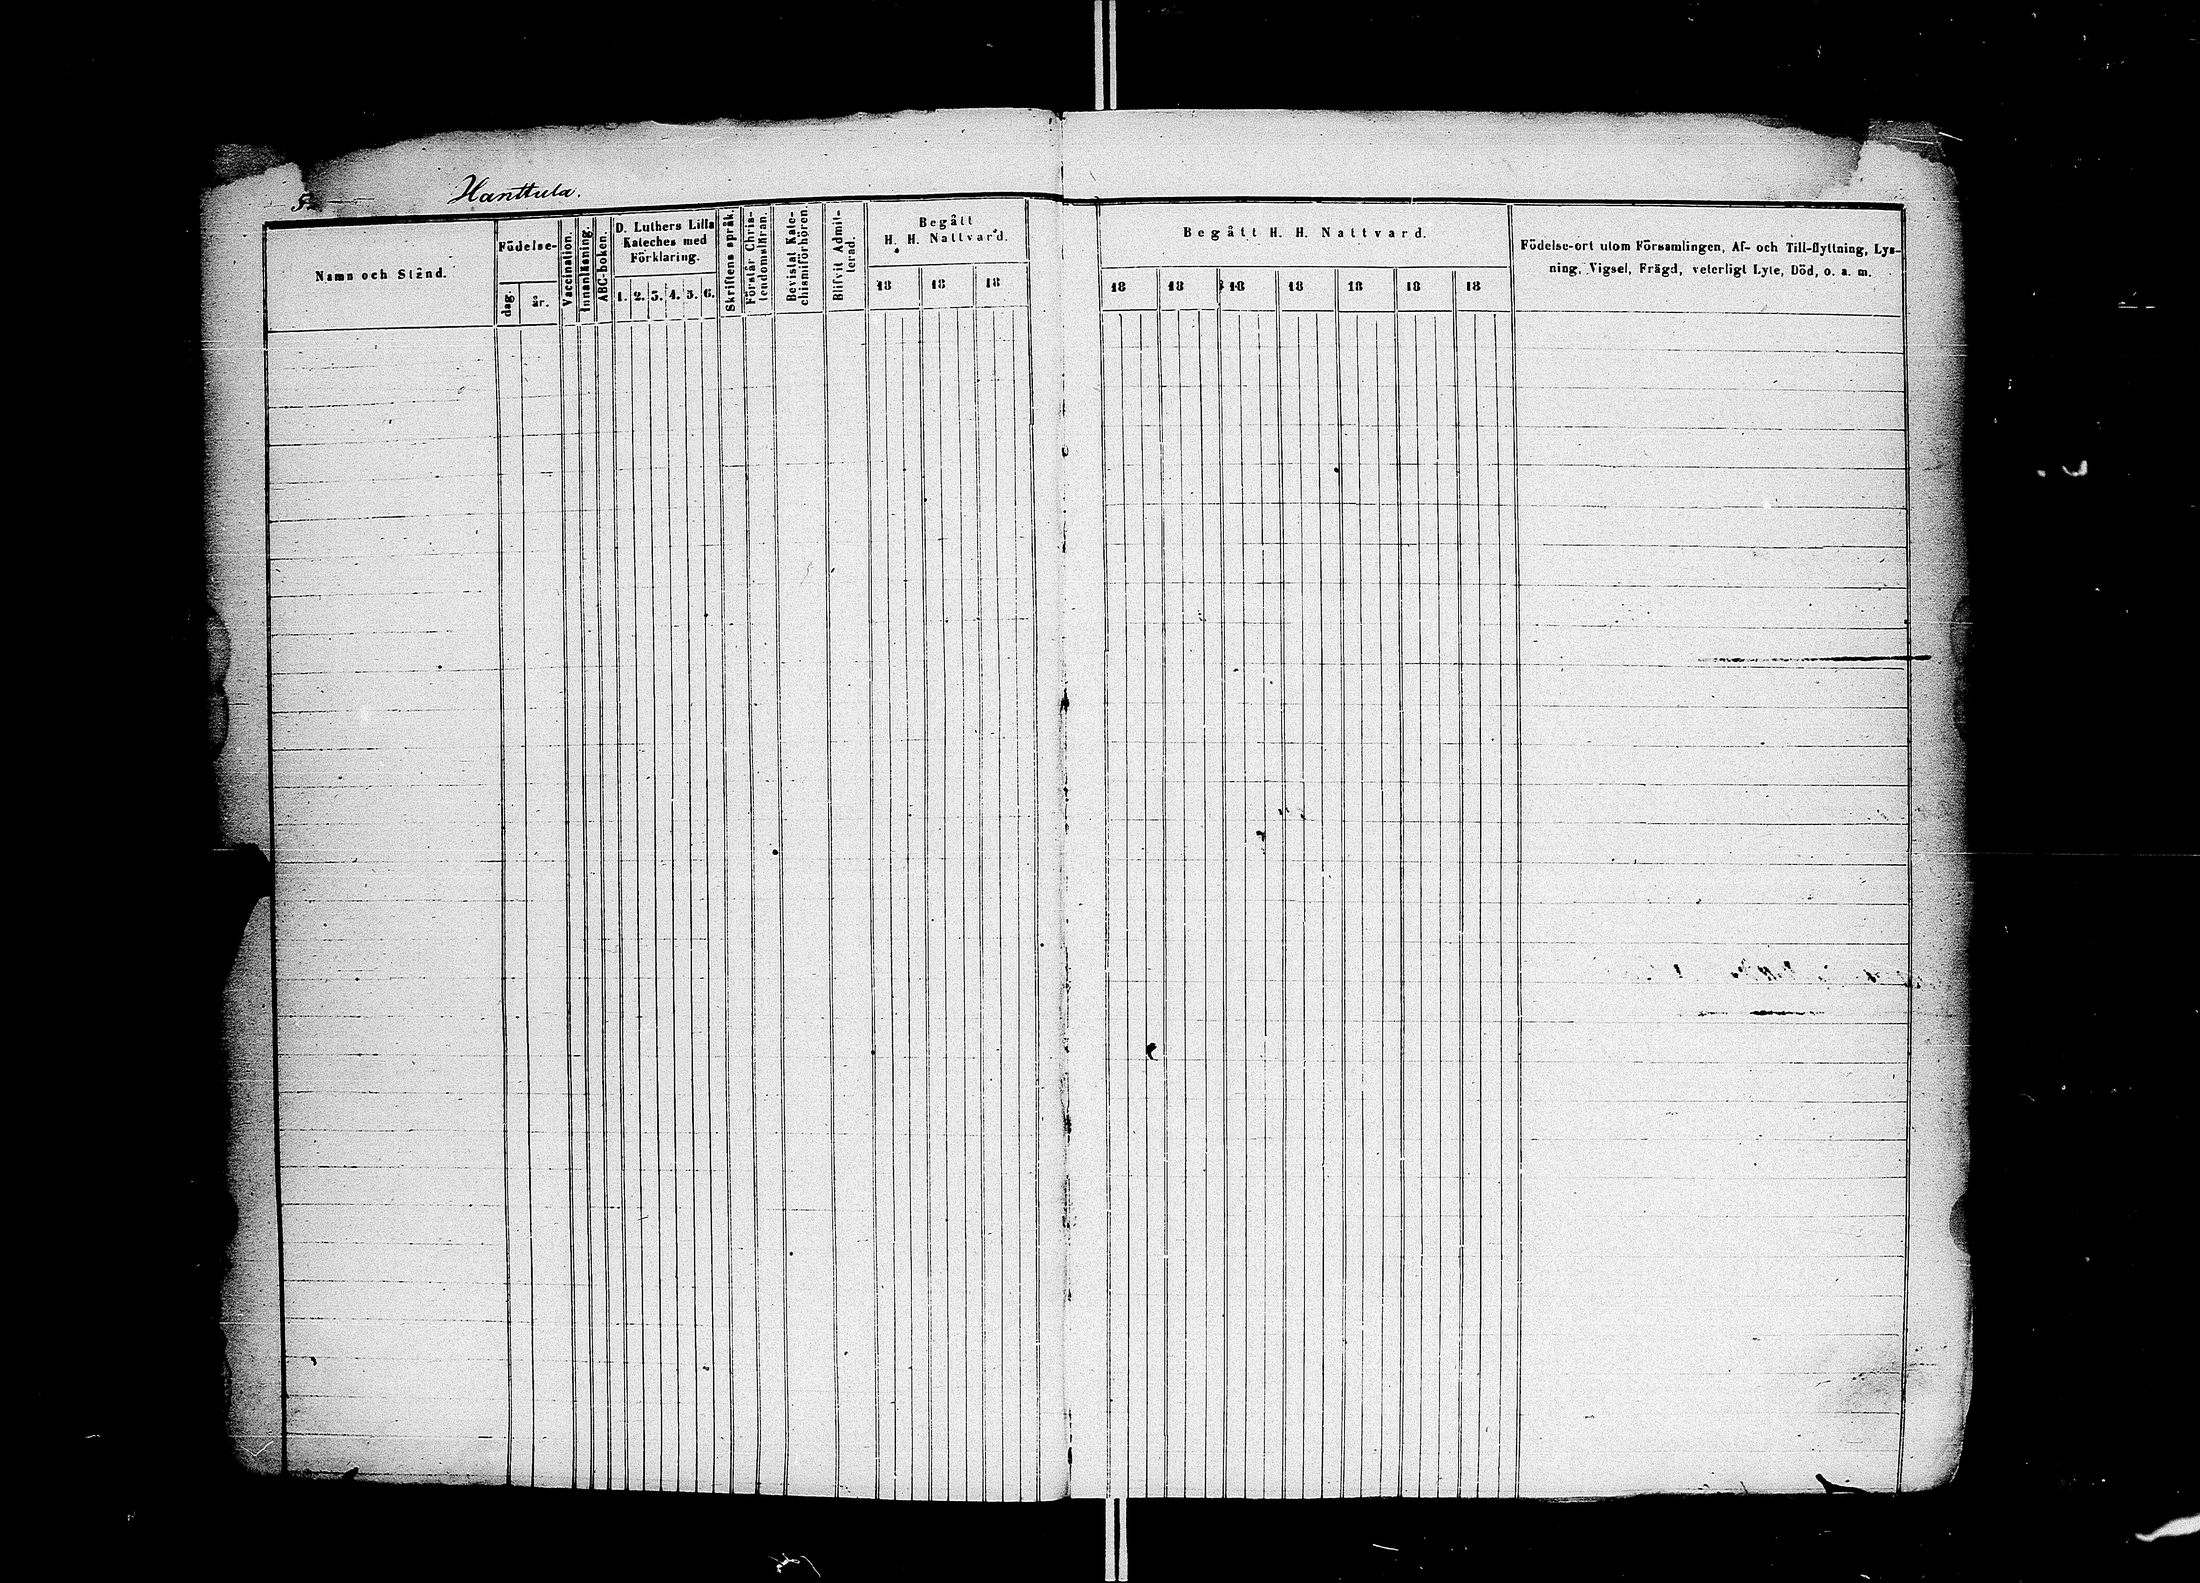 Hanttula.
Namn och Stånd.
Födelse-
dag.
år.
Vaccination.
Innanläsning.
ABC-boken.
D. Luthers Lilla
Kateches med
Förklaring.
1. 2. 3. 4. 5. 6.
Skriftens språk.
Förstår Chris-
tendomsläran.
Bevistat Kate-
chismiförhören.
Blifvit Admit-
terad.
Begått
H. H. Nattvard.
18 18 18
Begått H. H. Nattvard.
18 18 18 18 18 18 18
Födelse-ort utom Församlingen, Af- och Till-flyttning, Lys-
ning, Vigsel, Frägd, veterligt Lyte, Död, o. a. m.